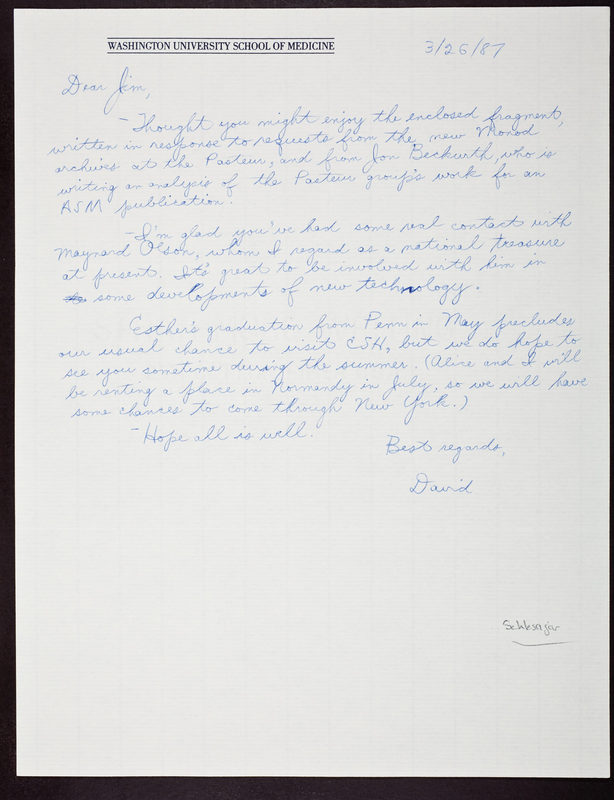 WASHINGTON UNIVERSITY SCHOOL OF MEDICINE
3/26/87
Dear Jim,
- Thought you might enjoy the enclosed fragment,
written in response to requests from the new Monod
archives at the Pasteur, and from Jon Beckwith, who is
writing an analysis of the Pasteur group's work for an
ASM publication.
- I'm glad you've had some real contact with
Maynard Olson, whom I regard as a national treasure
at present. It's great to be involved with him in
some developments of new technology.
Esther's graduation from Penn in May precludes
our usual chance to visit CSH, but we do hope to
see you sometime during the summer. (Alice and I will
be renting a place in Normandy in July, so we will have
some chances to come through New York.)
- Hope all is well.
Best regards,
David
Schlesinger